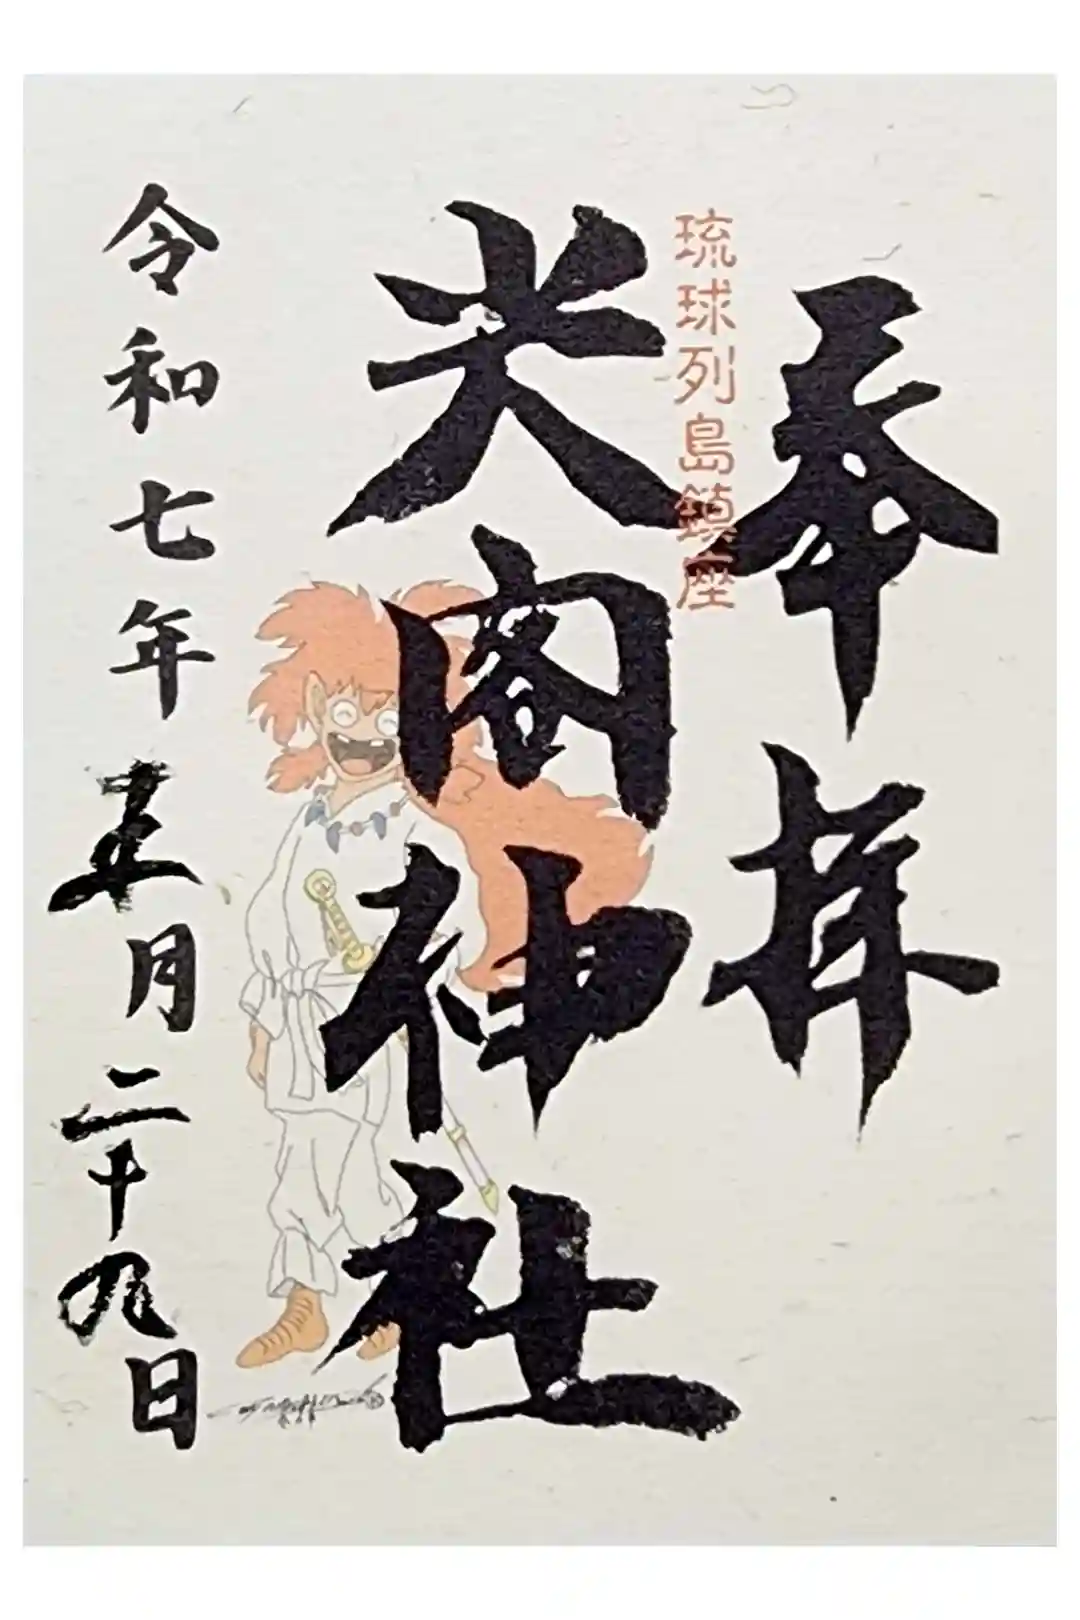 奉拝
琉球列島鎮座
神社
令和七年五月二十九日